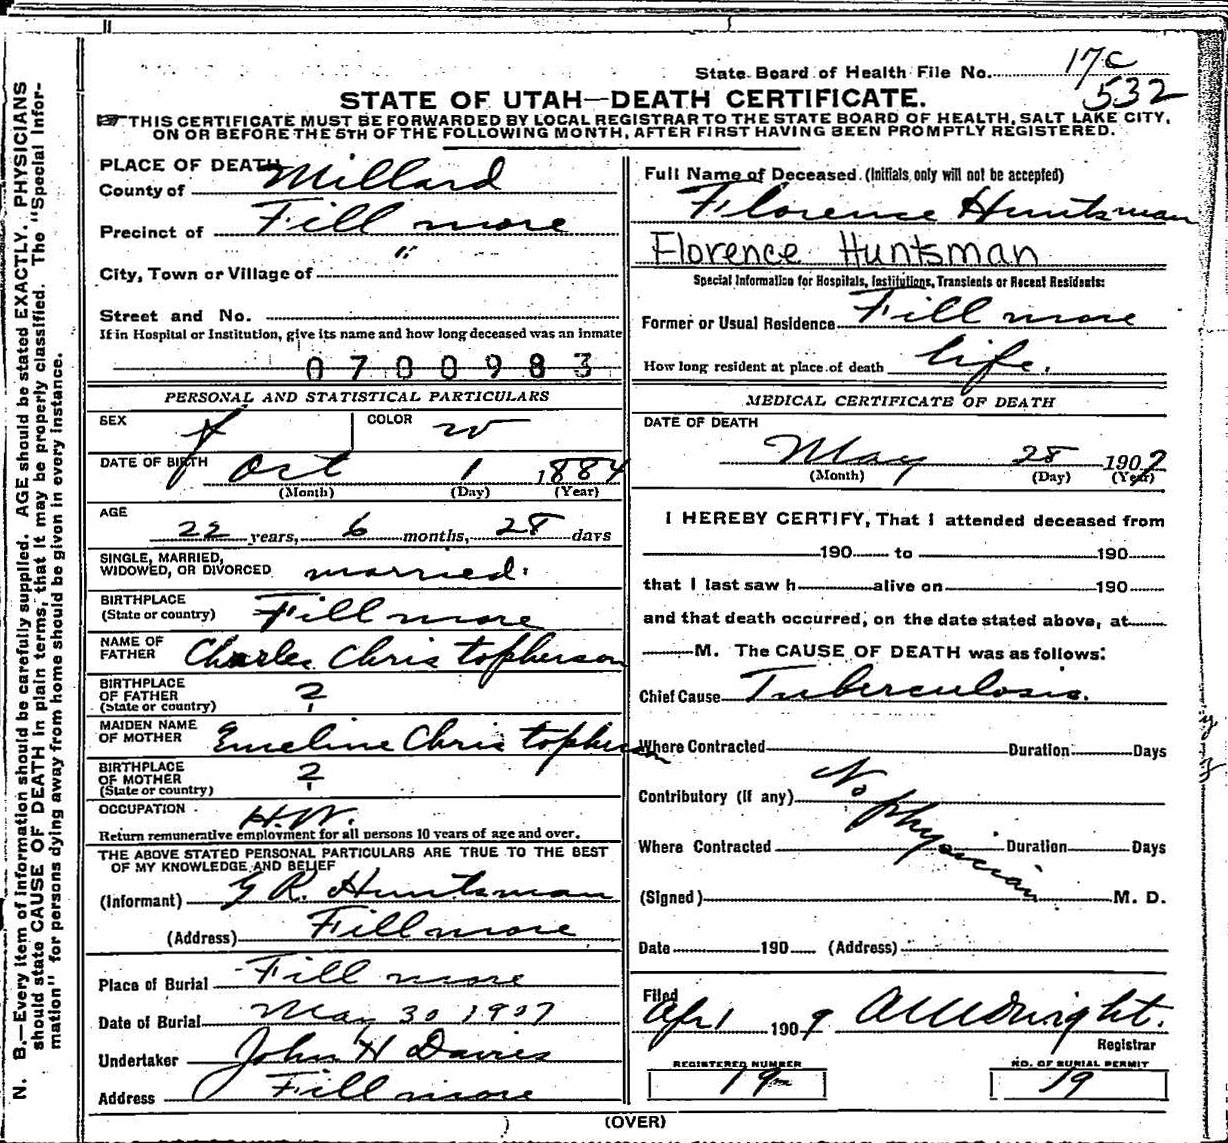 State Board of Health File No. 17c
532
STATE OF UTAH—DEATH CERTIFICATE.
THIS CERTIFICATE MUST BE FORWARDED BY LOCAL REGISTRAR TO THE STATE BOARD OF HEALTH, SALT LAKE CITY,
ON OR BEFORE THE 5TH OF THE FOLLOWING MONTH, AFTER FIRST HAVING BEEN PROMPTLY REGISTERED.
N. B.—Every item of information should be carefully supplied. AGE should be stated EXACTLY. PHYSICIANS
should state CAUSE OF DEATH in plain terms, that it may be properly classified. The "Special Infor-
mation" for persons dying away from home should be given in every instance.
PLACE OF DEATH
County of Millard
Precinct of Fillmore
City, Town or Village of "
Street and No.
If in Hospital or Institution, give its name and how long deceased was an inmate
0700983
PERSONAL AND STATISTICAL PARTICULARS
SEX f COLOR w
DATE OF BIRTH Oct 1 1884
(Month) (Day) (Year)
AGE
22 years, 6 months, 28 days
SINGLE, MARRIED,
WIDOWED, OR DIVORCED married
BIRTHPLACE
(State or country) Fillmore
NAME OF
FATHER Charles Christopherson
BIRTHPLACE
OF FATHER
(State or country) ?
MAIDEN NAME
OF MOTHER Emeline Christopherson
BIRTHPLACE
OF MOTHER
(State or country) ?
OCCUPATION H.W.
Return remunerative employment for all persons 10 years of age and over.
THE ABOVE STATED PERSONAL PARTICULARS ARE TRUE TO THE BEST
OF MY KNOWLEDGE AND BELIEF
(Informant) G R. Huntsman
(Address) Fillmore
Place of Burial Fillmore
Date of Burial May 30 1907
Undertaker John H Davies
Address Fillmore
Full Name of Deceased (Initials only will not be accepted)
Florence Huntsman
Florence Huntsman
Special Information for Hospitals, Institutions, Transients or Recent Residents:
Former or Usual Residence Fillmore
How long resident at place of death life.
MEDICAL CERTIFICATE OF DEATH
DATE OF DEATH
May 28 1907
(Month) (Day) (Year)
I HEREBY CERTIFY, That I attended deceased from
190 to 190
that I last saw h alive on 190
and that death occurred, on the date stated above, at
M. The CAUSE OF DEATH was as follows:
Chief Cause Tuberculosis.
Where Contracted Duration Days
Contributory (if any) No physician
Where Contracted Duration Days
(Signed) M. D.
Date 190 (Address)
Filed
Apr 1 1909
Registrar
REGISTERED NUMBER NO. OF BURIAL PERMIT
19 19
(OVER)